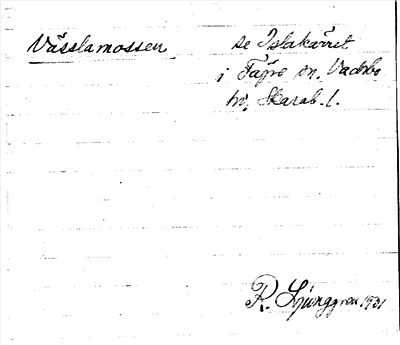 Vässlamossen
se Islakärret
i Fägre sn, Vadsbo
hd, Skarab. l.
R. Ljunggren 1931